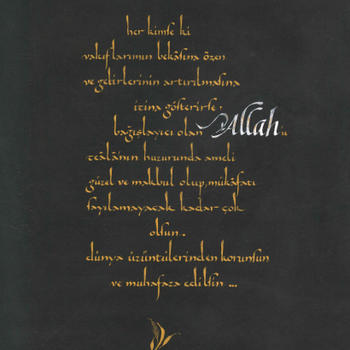 her kimse ki
vakıflarımın bekâsına özen
ve gelirlerinin artırılmasına
itina gösterirse;
bağışlayıcı olan Allah'u
teâlânın huzurunda ameli
güzel ve makbul olup, mükâfatı
sayılamayacak kadar çok
olsun.
dünya üzüntülerinden korunsun
ve muhafaza edilsin ...